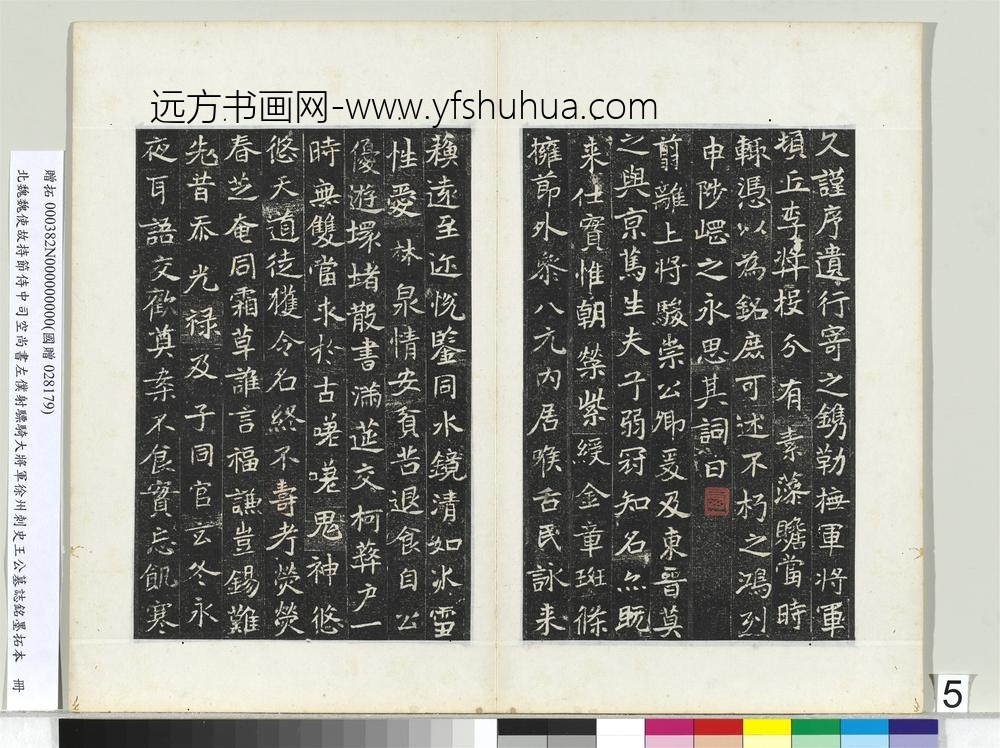 远方书画网-www.yfshuhua.com
久謹序遺行寄之鐫勒撫軍將軍
頓丘李獎投分有素藻贍當時
輒憑以為銘庶可述不朽之鴻烈
申陟岵之永思其詞曰
翦離上將駿崇公卿爰及東晉莫
之與京篤生夫子弱冠知名亦既
來仕實惟朝榮紫綬金章珩
擁節外參八元內居喉舌民詠来
穌遠至迩恱鑒同水鏡清如氷雪
性愛林泉情安貧苦退食自公
優遊環堵散書滿莚交柯蔽户一
時無雙當求於古嗟嗟鬼神悠
悠天道徒獲令名終不壽考熒熒
春芝奄同霜草誰言福謙豈錫難
先昔忝光禄及子同官玄冬永
夜耳語交歡奠案不食實忘飢寒
贈拓 000382N000000000(國贈 028179)
北魏魏使故持節侍中司空尚書左僕射驃騎大將軍徐州刺史王公墓誌銘墨拓本 冊
5